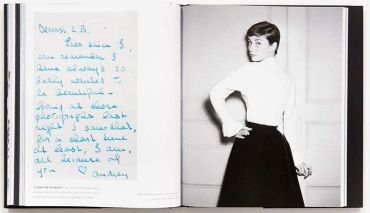 Dearest C.B.
Ever since I
can remember I
have always so
badly wanted to
be beautiful.
Looking at those
photographs last
night I saw that,
for a short time
at least, I am,
all because of
you ♡ Audrey